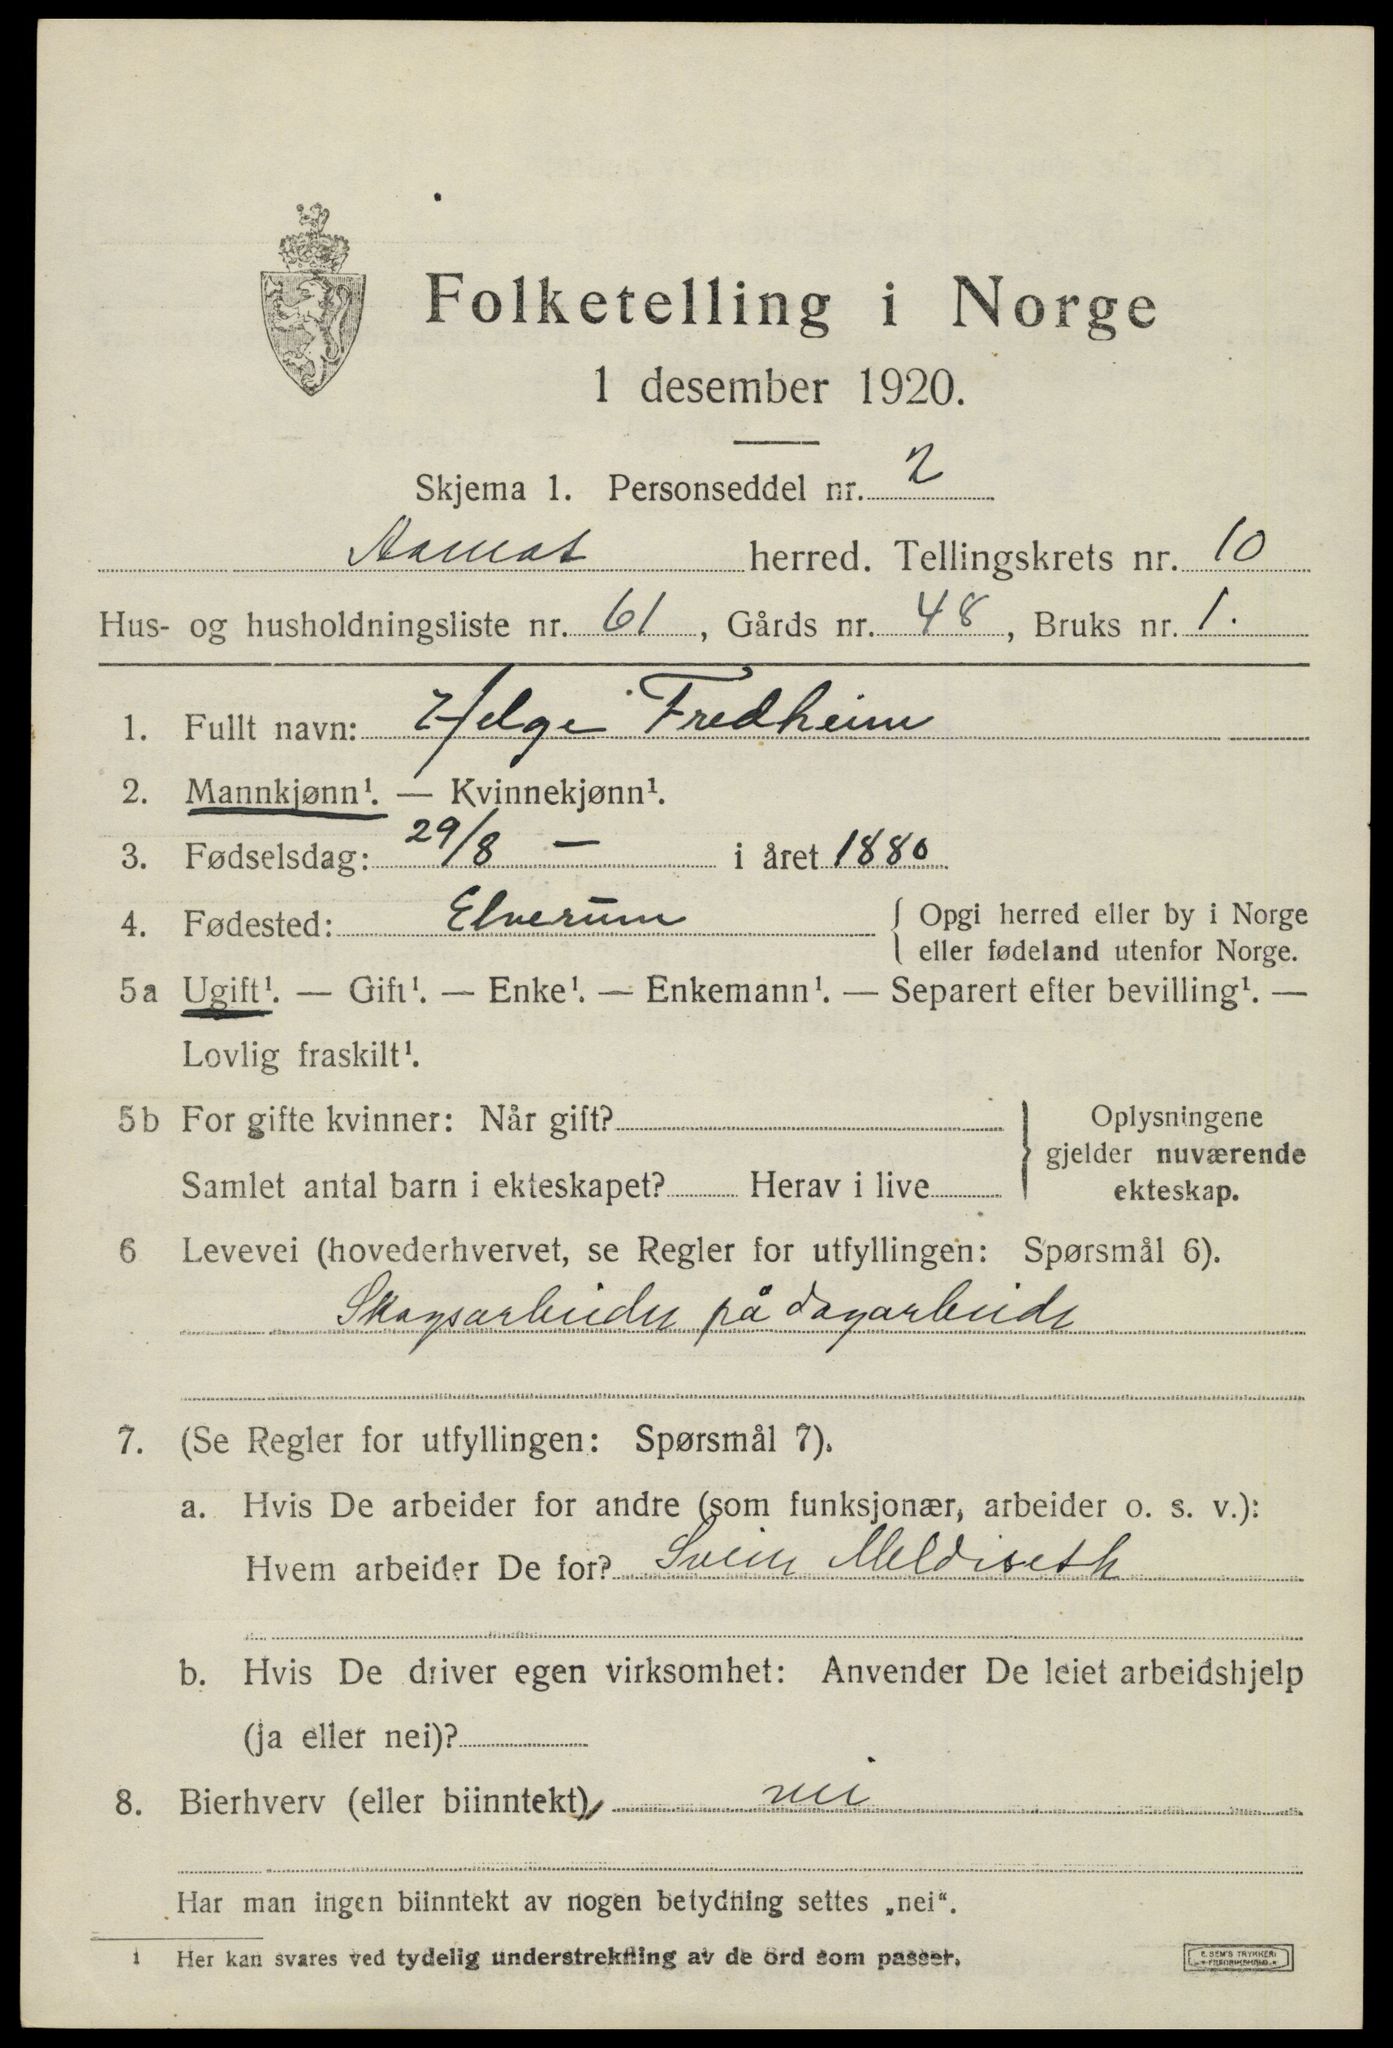 Folketelling i Norge
1 desember 1920.
Skjema 1. Personseddel nr. 2
Aamot herred. Tellingskrets nr. 10
Hus- og husholdningsliste nr. 61, Gårds nr. 48, Bruks nr. 1.
1. Fullt navn: Helge Fredheim
2. Mannkjønn¹. — Kvinnekjønn¹.
3. Fødselsdag: 29/8 — i året 1880
4. Fødested: Elverum { Opgi herred eller by i Norge
eller fødeland utenfor Norge.
5a Ugift¹. — Gift¹. — Enke¹. — Enkemann¹. — Separert efter bevilling¹. —
Lovlig fraskilt¹.
5b For gifte kvinner: Når gift? } Oplysningene
gjelder nuværende
Samlet antal barn i ekteskapet? Herav i live ekteskap.
6 Levevei (hovederhvervet, se Regler for utfyllingen: Spørsmål 6).
Skogsarbeider på dagarbeide
7. (Se Regler for utfyllingen: Spørsmål 7).
a. Hvis De arbeider for andre (som funksjonær, arbeider o. s. v.):
Hvem arbeider De for? Svein Meldiseth
b. Hvis De driver egen virksomhet: Anvender De leiet arbeidshjelp
(ja eller nei)?
8. Bierhverv (eller biinntekt) nei
Har man ingen biinntekt av nogen betydning settes „nei“.
1 Her kan svares ved tydelig understrekning av de ord som passer.
E. SEM'S TRYKKERI
FREDRIKSHALD